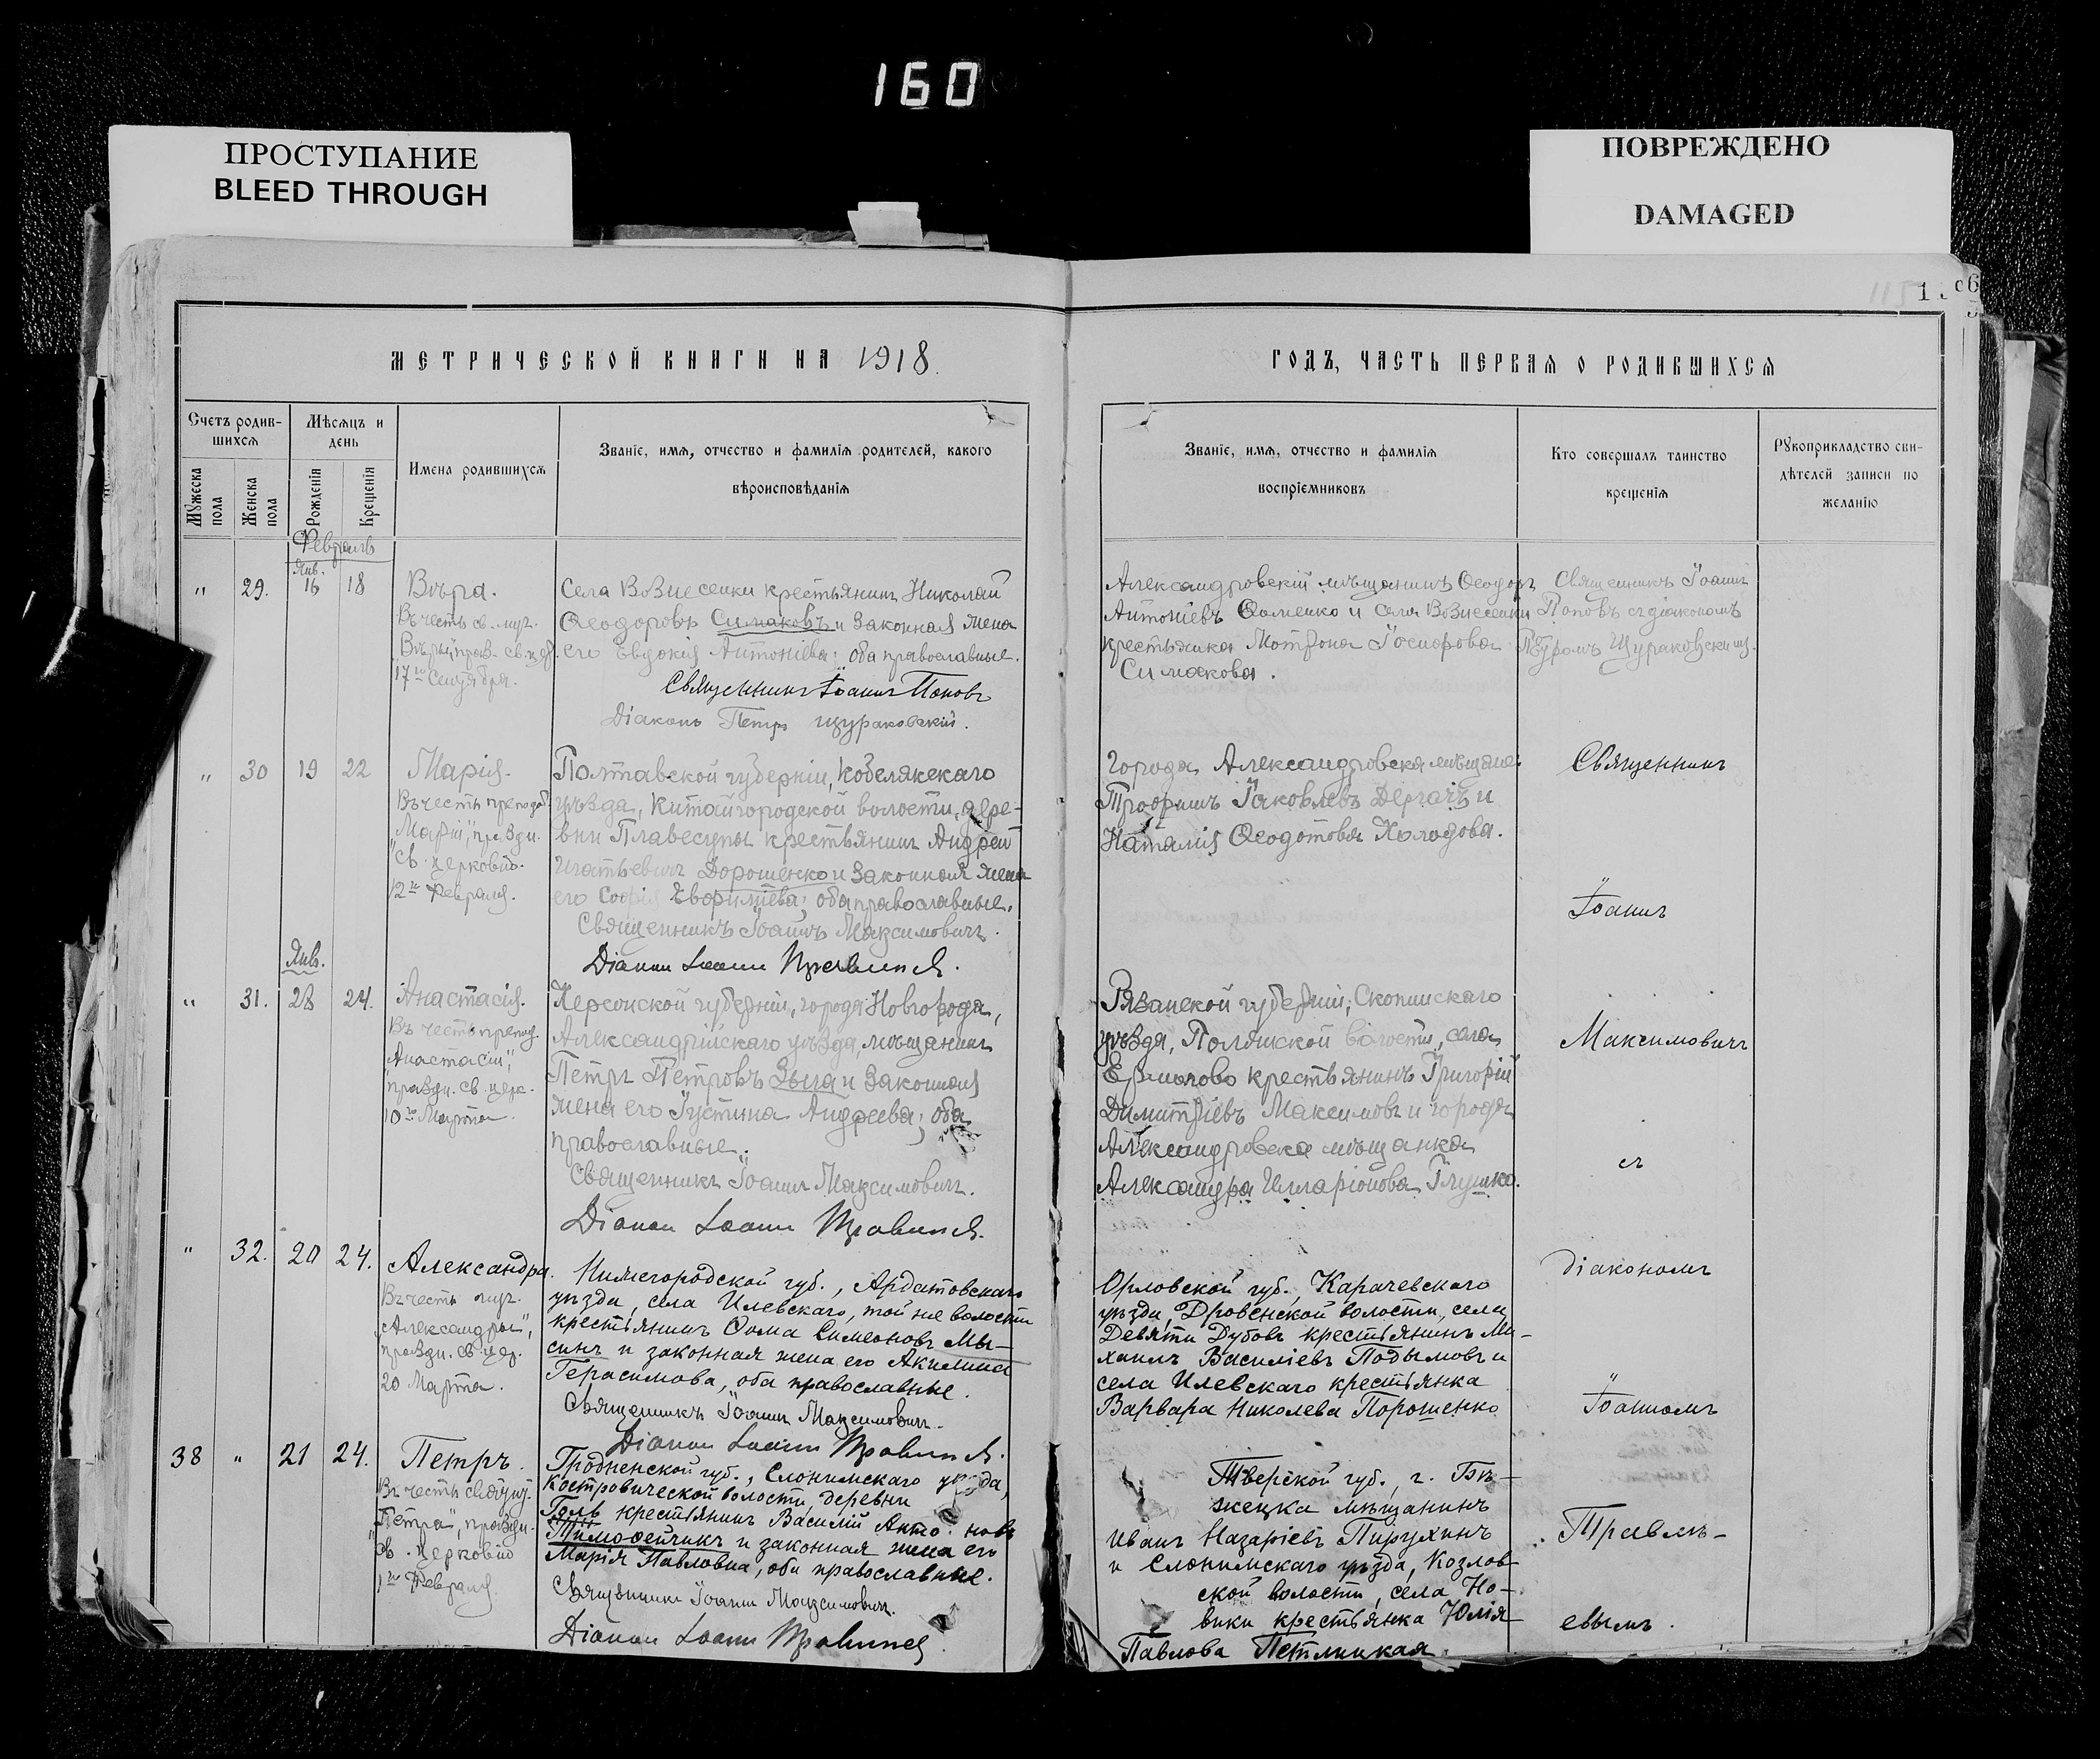 160
ПРОСТУПАНИЕ
BLEED THROUGH
ПОВРЕЖДЕНО
DAMAGED
МЕТРИЧЕСКОЙ КНИГИ НА 1918
Счетъ родив-
шихся
Мѣсяцъ и
день
Имена родившихся
Званіе, имя, отчество и фамилія родителей, какого
вѣроисповѣданія
Мужеска
пола
Женска
пола
Рожденія
Крещенія
Февраль
Янв.
" 29. 16 18 Вѣра.
Въ честь св. муч.
Вѣры, празд. св. цер.
17го Сентября.
Села Вознесенки крестьянинъ Николай
Ѳеодоровъ Симаковъ и законная жена
его Евдокія Антоніева; оба православные.
Священникъ Іоаннъ Поповъ
Діаконъ Петръ Щураковскій.
" 30 19 22 Марія.
Въ честь препод.
"Маріи", праздн.
св. церковію
12го Февраля.
Полтавской губерніи, Кобелякскаго
уѣзда, Китайгородской волости, дере-
вни Плавесупы крестьянинъ Андрей
Игнатьевичъ Дорошенко и законная жена
его Софія Евфиміева; оба православные.
Священникъ Іоаннъ Максимовичъ.
Діакон Іоанн
Янв.
" 31. 28 24. Анастасія.
Въ честь препод.
"Анастасіи",
праздн. св. церк.
10го Марта.
Херсонской губерніи, города Новгорода,
Александрійскаго уѣзда, мѣщанинъ
Петръ Петровъ Зыга и законная
жена его Іустина Андреева; оба
православные.
Священникъ Іоаннъ Максимовичъ.
Діакон Іоанн
" 32. 20 24. Александра.
Въ честь муч.
"Александры",
праздн. св. цер.
20 Марта.
Нижегородской губ., Ардатовскаго
уѣзда, села Илевскаго, той же волости
крестьянинъ Ѳома Симеоновъ Мы-
синъ и законная жена его Акилина
Герасимова, оба православные.
Священникъ Іоаннъ Максимовичъ.
Діакон Іоанн
38 " 21 24. Петръ.
Въ честь
"Петра", праздн.
св. церковію
1го Февраля.
Гродненской губ., Слонимскаго уѣзда,
Костровической волости, деревни
Голь крестьянинъ Василій Анто новъ
Тимоѳейчикъ и законная жена его
Марія Павловна, оба православные.
Священникъ Іоаннъ Максимовичъ.
Діакон Іоанн
ГОДЪ, ЧАСТЬ ПЕРВАЯ О РОДИВШИХСЯ
Званіе, имя, отчество и фамилія
воспріемниковъ
Кто совершалъ таинство
крещенія
Рукоприкладство сви-
дѣтелей записи по
желанію
Александровскій мѣщанинъ Ѳеодоръ
Антоніевъ Ѳоменко и села Вознесенки
крестьянка Мотрона Іосифова
Симакова.
Священникъ Іоаннъ
Поповъ съ діакономъ
Петромъ Щураковскимъ.
Города Александровска мѣщане:
Трофимъ Іаковлевъ Дергачъ и
Наталія Ѳеодотова Холодова.
Священникъ
Іоаннъ
Рязанской губерніи, Скопинскаго
уѣзда, волости, села
Ермолово крестьянинъ Григорій
Димитріевъ Максимовъ и города
Александровска мѣщанка
Александра Илларіонова Глушко.
Максимовичъ
съ
Орловской губ., Карачевскаго
уѣзда, Дровенской волости, села
Девяти Дубовъ крестьянинъ Ми-
хаилъ Василіевъ Подымовъ и
села Илевскаго крестьянка
Варвара Николева Порошенко
діакономъ
Іоанномъ
Тверской губ., г. Бѣ-
жецка мѣщанинъ
Иванъ Назаріевъ Пирухинъ
и Слонимскаго уѣзда, Козлов-
ской волости, села Но-
вики крестьянка Юлія
Павлова Петлицкая.
Травлѣ-
евымъ.